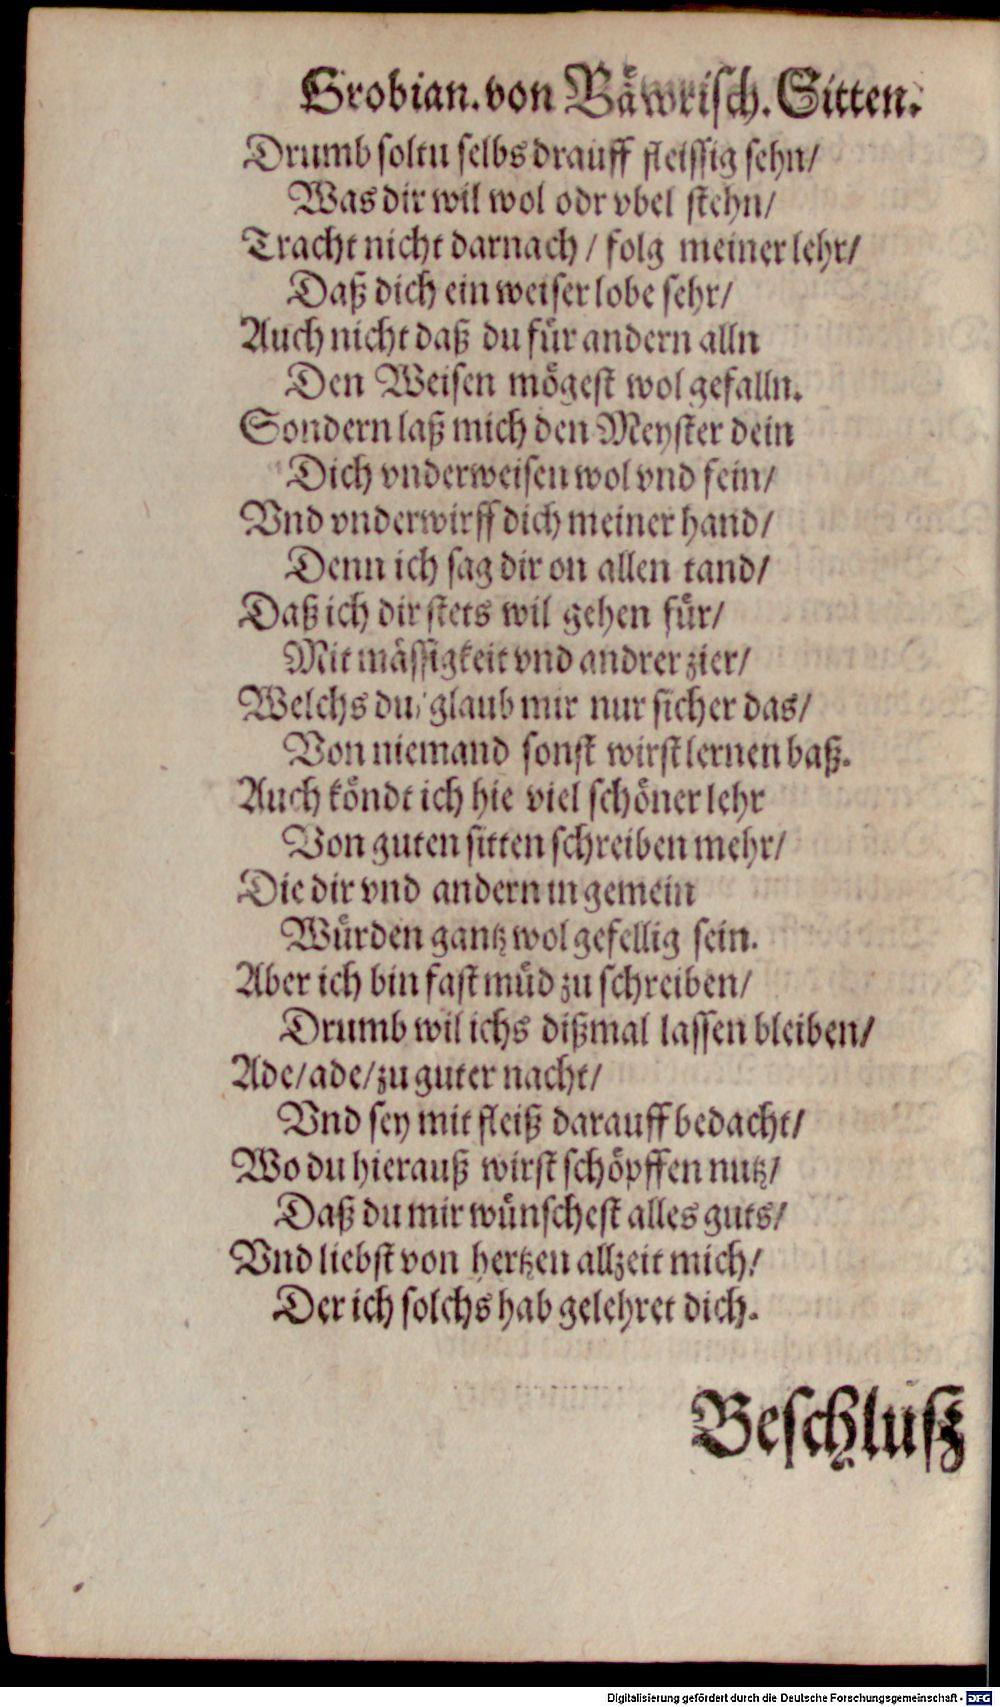 Grobian. von Bäwrisch. Sitten.
Drumb soltu selbs drauff fleissig sehn/
Was dir wil wol odr vbel stehn/
Tracht nicht darnach / folg meiner lehr/
Daß dich ein weiser lobe sehr/
Auch nicht daß du für andern alln
Den Weisen mögest wol gefalln.
Sondern laß mich den Meyster dein
Dich vnderweisen wol vnd fein/
Vnd vnderwirff dich meiner hand/
Denn ich sag dir on allen tand/
Daß ich dir stets wil gehen für/
Mit mässigkeit vnd andrer zier/
Welchs du/ glaub mir nur sicher das/
Von niemand sonst wirst lernen baß.
Auch köndt ich hie viel schöner lehr
Von guten sitten schreiben mehr/
Die dir vnd andern in gemein
Würden gantz wol gefellig sein.
Aber ich bin fast müd zu schreiben/
Drumb wil ichs dißmal lassen bleiben/
Ade/ ade/ zu guter nacht/
Vnd sey mit fleiß darauff bedacht/
Wo du hierauß wirst schöpffen nutz/
Daß du mir wünschest alles guts/
Vnd liebst von hertzen allzeit mich/
Der ich solchs hab gelehret dich.
Beschluß
Digitalisierung gefördert durch die Deutsche Forschungsgemeinschaft - DFG